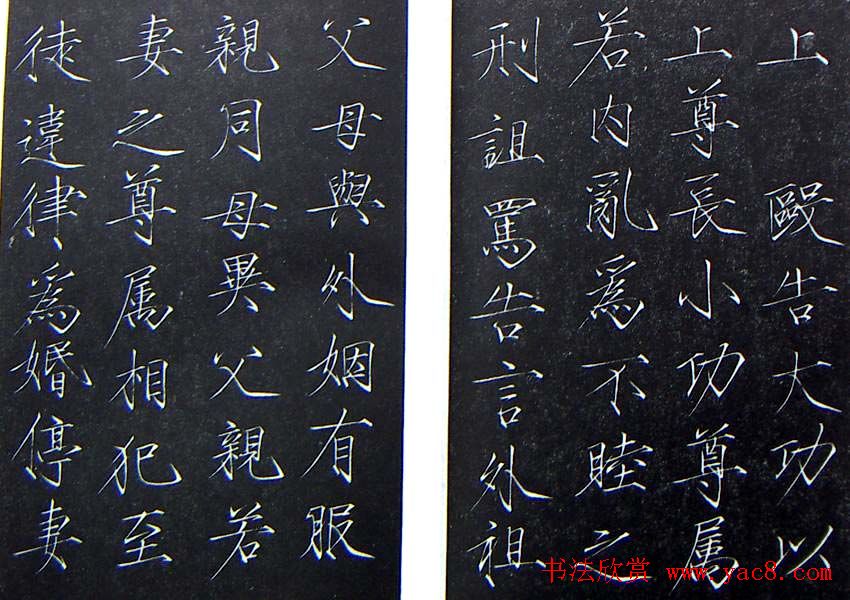 上 毆告大功以
上尊長小功尊属
若内亂爲不睦之
刑詛罵告言外祖
父母與外姻有服
親同母異父親若
妻之尊属相犯至
徒違律爲婚停妻
书法欣赏 www.yac8.com